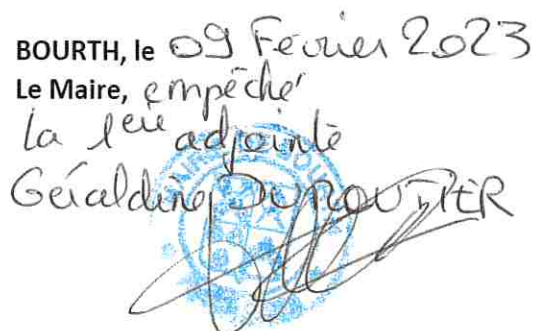 BOURTH, le 09 Février 2023
Le Maire, empêché
la 1ere adjointe
Géraldine DUROUTIER